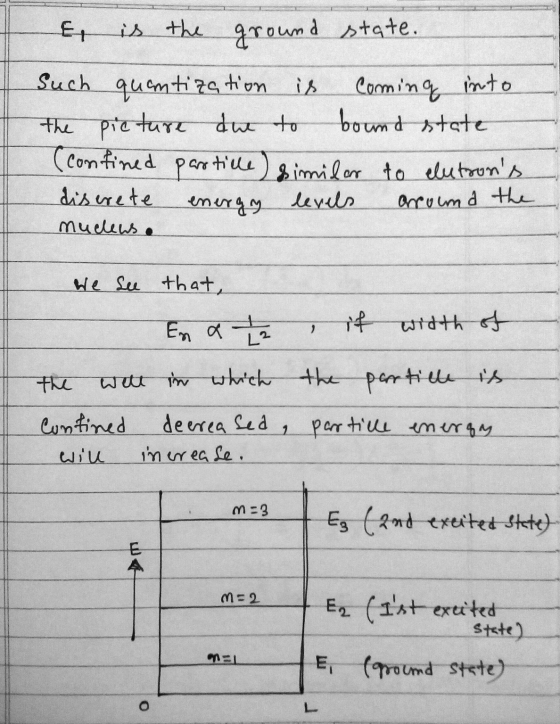 E₁ is the ground state.
Such quantization is coming into
the picture due to bound state
(confined particle) similar to elutron's
discrete energy levels around the
nucleus.
We see that,
Eₙ ∝ 1/L² , if width of
the well in which the particle is
confined decreased, particle energy
will increase.
n=3 E₃ (2nd excited state)
E
n=2 E₂ (I'st excited
state)
n=1 E₁ (ground state)
O L